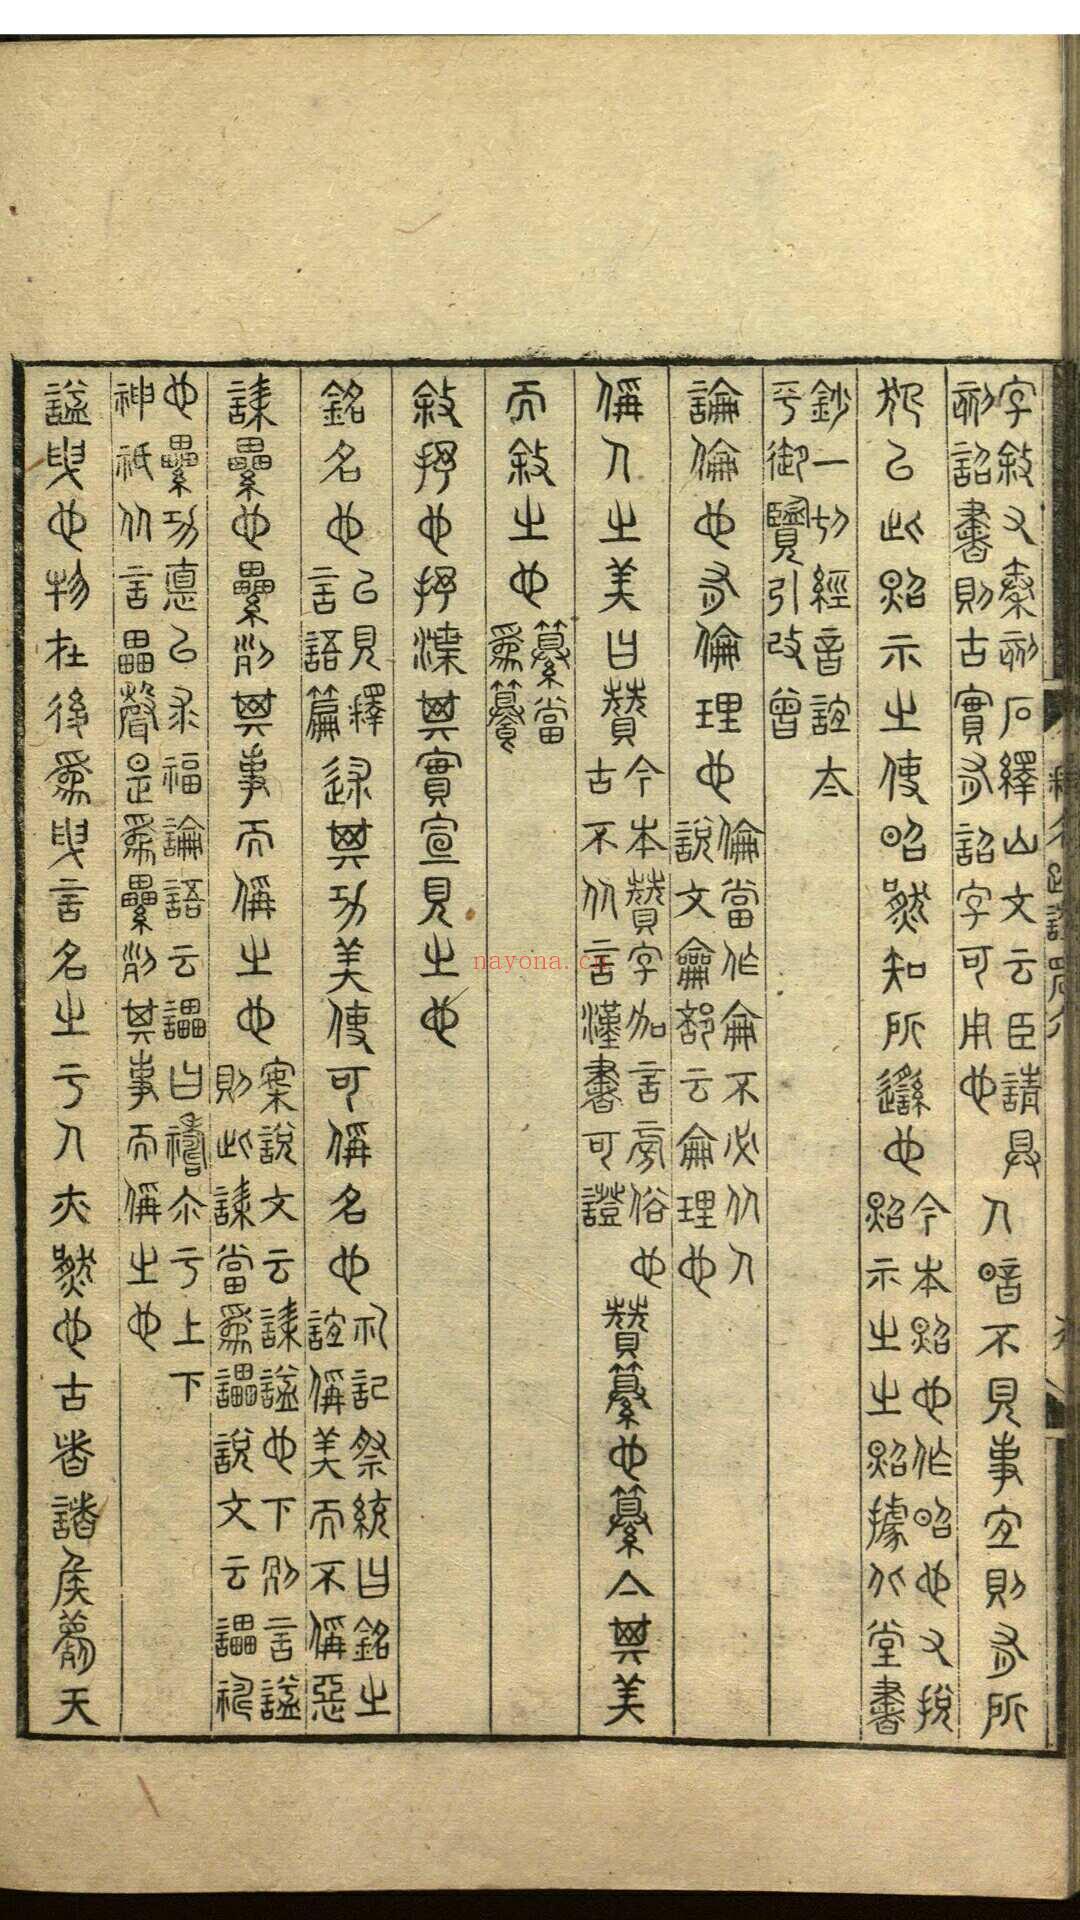 字敘又秦刻石繹山文云臣請具
刻詔書則古實有詔字可用也
人暗不見事宜則有所
犯以此炤示之使昭然知所邎也
今本炤也作昭也又挩
炤示之之炤據北堂書
鈔一切經音誼太
平御覽引改曾
論倫也有倫理也
倫當作侖不必从人
說文龠部云侖理也
稱人之美曰贊
今本贊字加言㫄俗也
古不从言漢書可證
贊纂也纂亼其美
而敘之也
纂當
為籑
敘抒也抒渫其實宣見之也
銘名也
已見釋
言語篇
述其功美使可稱名也
礼記祭統曰銘之
誼稱美而不稱惡
誄纍也纍列其事而稱之也
案說文云誄謚也下列言謚
則此誄當為讄說文云讄禱
也纍功悳以求福論語云讄曰禱尒于上下
神祇从言畾聲是為纍列其事而稱之也
謚曳也物在後為曳言名之于人亦然也古者諸侯薨天
nayona.cn